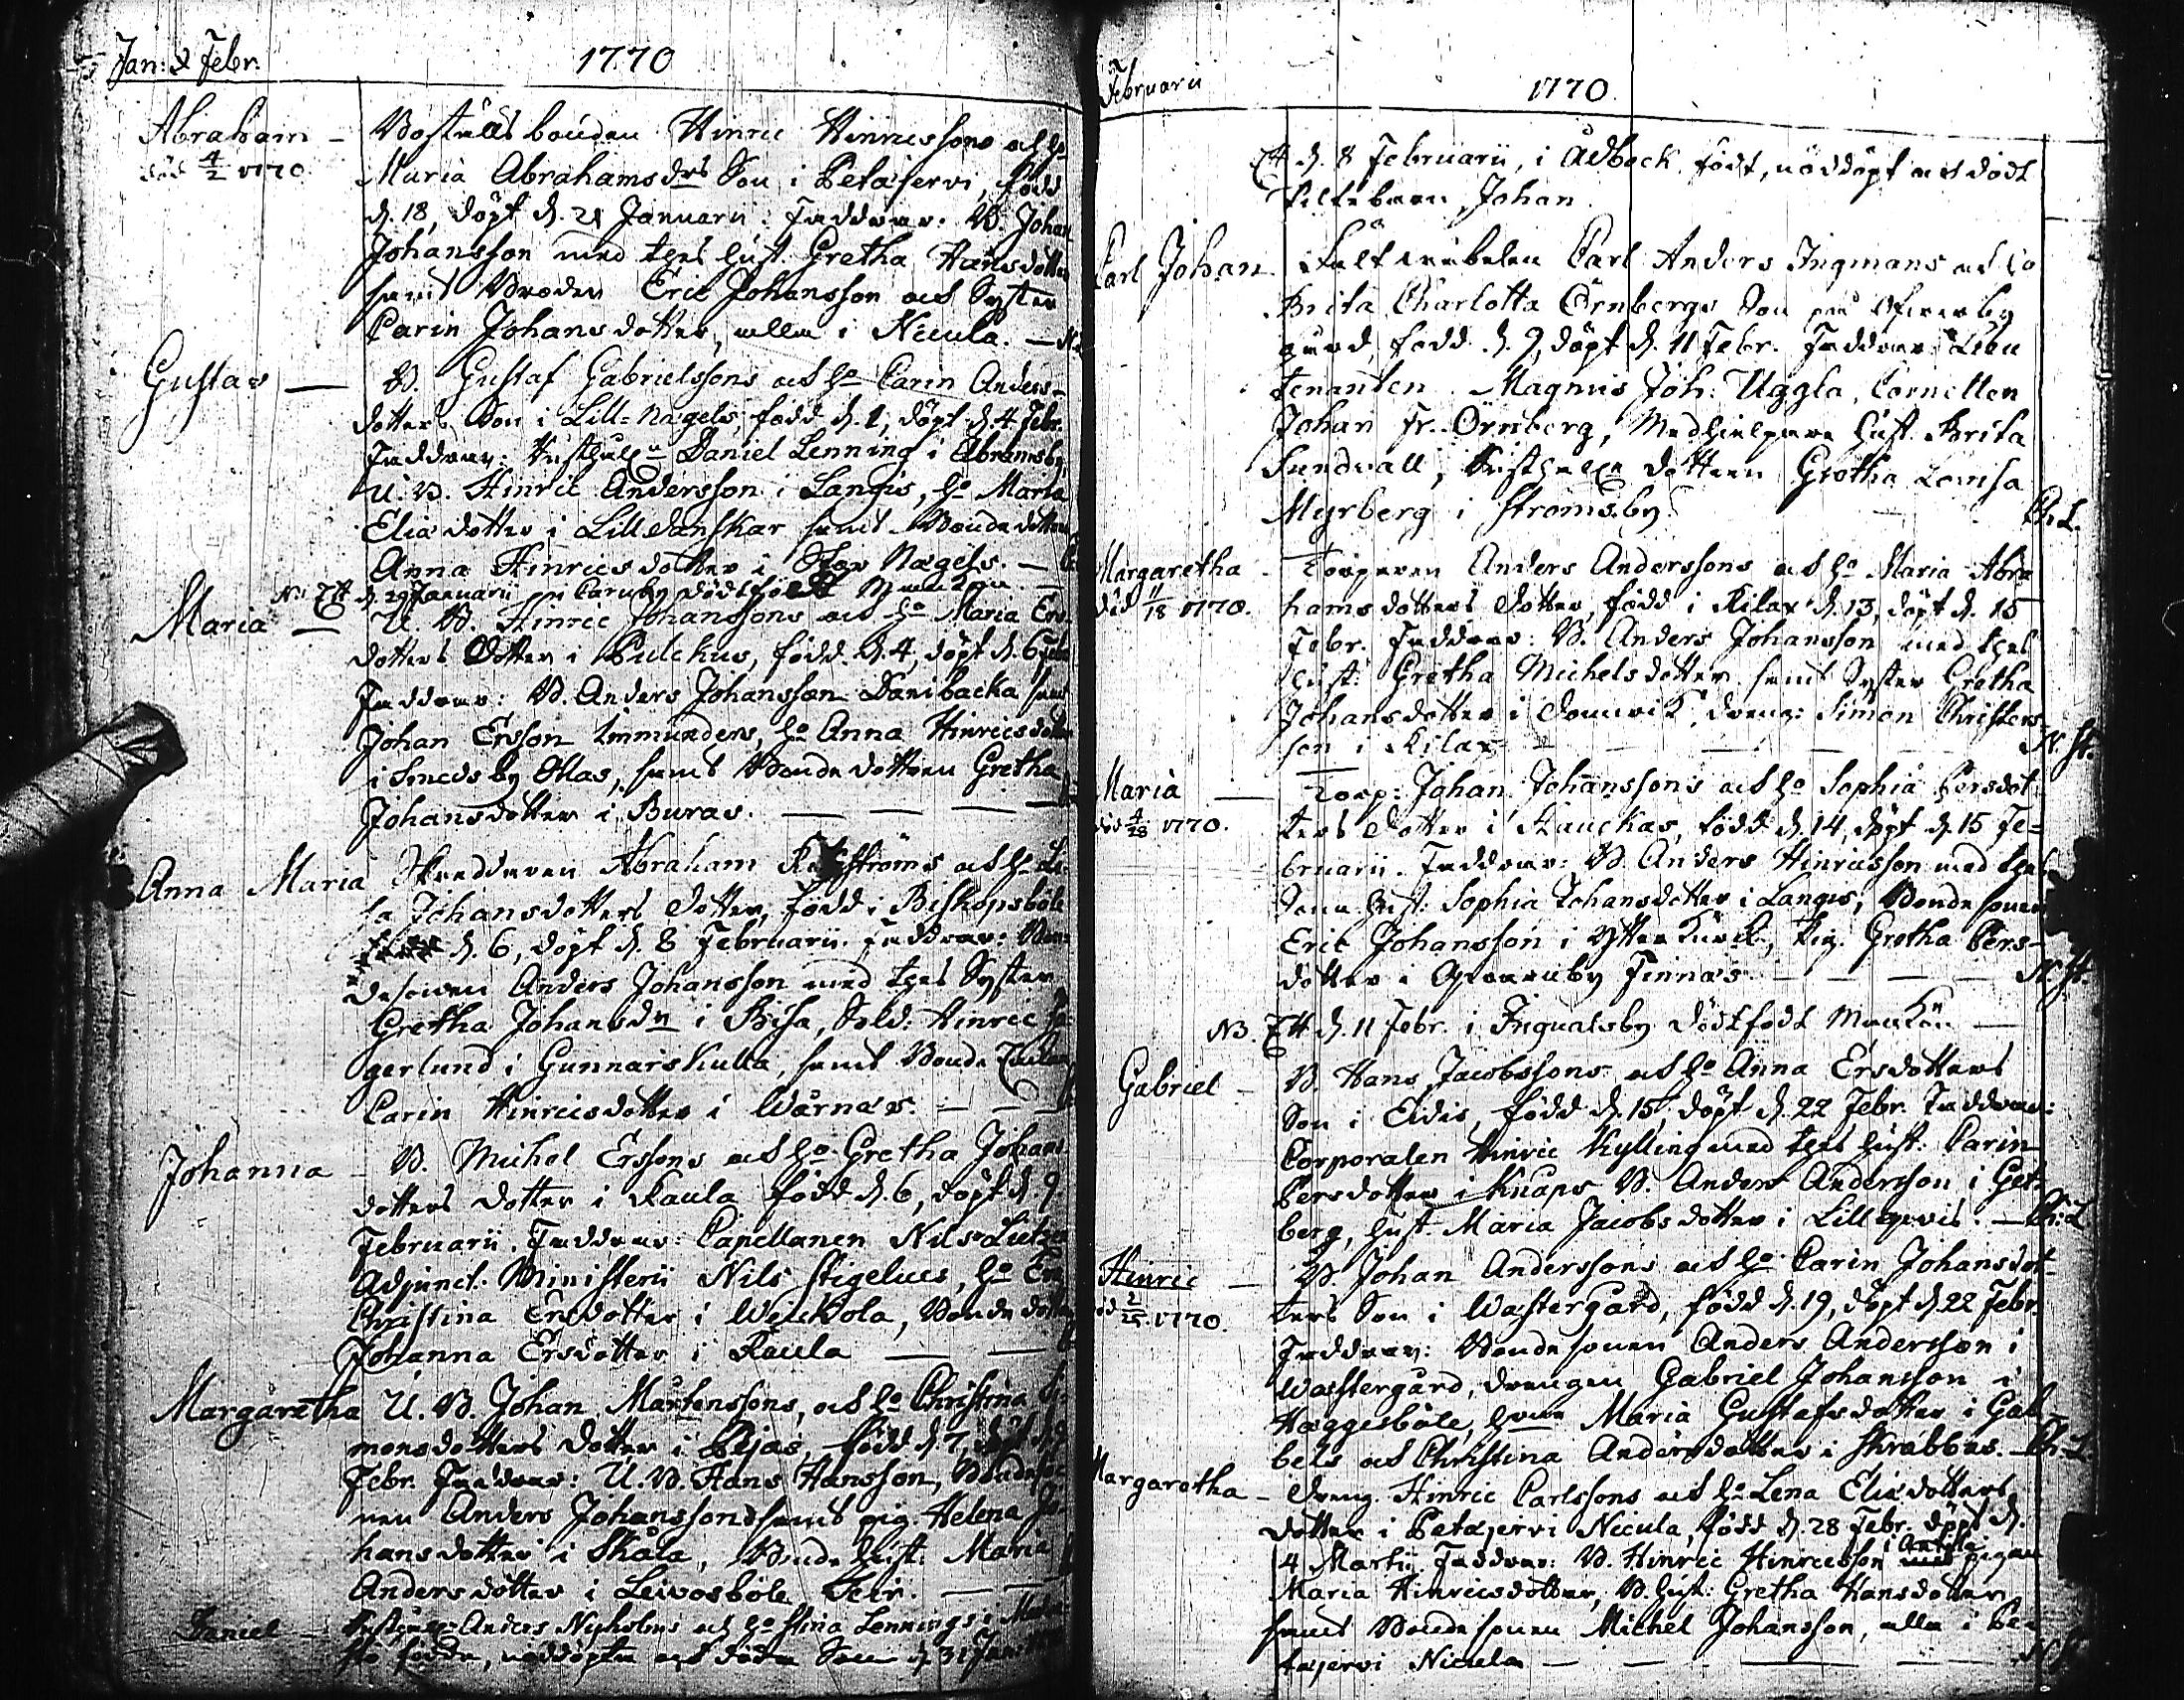 Jan: & Febr. 1770
Abraham – Boställs bonden Hinric Hinricssons och ho
död 4/2 1770. Maria Abrahamsdrs Son i Petäjervi, född
d. 18, döpt d. 21 Januarii. Faddrar: B. Johan
Johansson med thes hust. Gretha Hansdotter
samt Brodren Eric Johansson och Syster
Carin Johansdotter, alla i Nicula. —
Gustav — B. Gustaf Gabrielssons och ho Carin Anders-
dotters Son i Lill=Nägels, född d. 1, döpt d. 4 Febr.
Faddrar: Daniel Lenning i Abramsby,
U. B. Hinric Andersson i Långis, ho Maria
Eliædotter i Lilldanskar samt Bondedottren
Anna Hinricsdotter i Stor Nägels. —
NB: Ett d. 29 Januarii i dödfödt
Maria — U. B. Hinric Johanssons och ho Maria Ers
dotters Dotter i Pulckus, född d. 4, döpt d. 6 Febr.
Faddrar: B. Anders Johansson Danibacka samt
Johan Ersson Immunders, ho Anna Hinricsdotter
i Smedsby Ollas, samt Bondedottren Gretha
Johansdotter i Buras. — — —
Anna Maria Skreddaren Abraham och ho Li
sa Johansdotters dotter, född i Biskopsböle
d. 6, döpt d. 8 Februarii. Faddrar: Bon-
desonen Anders Johansson med thes Syster
Gretha Johansdr i Bisa, Sold: Hinric
gerlund i Gunnarskulla, samt Bonde
Carin Hinricsdotter i Wärnäs — — —
Johanna – B. Michel Erssons och ho Gretha Johans
dotters dotter i Kaula född d. 6, döpt d. 9
Februarii. Faddrar: Capellanen Nils
Adjunct. Ministerii Nils Stigelius, ho
Christina Ersdotter i Weickola, Bonde dottren
Johanna Ersdotter i Kaula — —
Margaretha U. B. Johan Mårtenssons, och ho Christina Si
monsdotters dotter i Pijas, född d. 7, döpt
Febr. Faddrar: U. B. Hans Hansson, Bondeso
nen Anders Johansson samt pig. Helena Jo
hansdotter i Skåla, Bonde hust. Maria
Andersdotter i Leivosböle — —
Daniel – Anders Nyholms och ho Stina Lennings i
födde, nöddöpte och döde Son d. 31 Jan

Februarii 1770
Ett d. 8 Februarii, i Ådbäck födt, nöddöpt och dödt
Piltebarn, Johan
Carl Johan Carl Anders Ingmans och ho
Brita Charlotta Örnbergs Son på
gård, född d. 9, döpt d. 11 Febr. Faddrar: Lieu
tenanten Magnus Joh: Uggla, Cornetten
Johan Fr. Örnberg, Medhielpare hust. Brita
Sundvall, dottren Gretha Lovisa
Myrberg i Strömsby. — Ch. L.
Margaretha – Torparen Anders Anderssons och ho Maria Abra
död 11/18 1770. hamsdotters dotter, född i Kilax d. 13, döpt d. 15
Febr. Faddrar: B. Anders Johansson med thes
hust. Gretha Michelsdotter samt Syster Gretha
Johansdotter i Domvik, dreng: Simon Christers-
son i Kilax — — — — N. St.
Maria — Torp: Johan Johanssons och ho Sophia Persdot-
död 4/28 1770. ters dotter i Kauckas, född d. 14, döpt d. 15 Fe=
bruarii. Faddrar: B. Anders Hinricsson med thes
Sona hust. Sophia Johansdotter i Långis, Bonde sonen
Eric Johansson i Ytter Kurck, Pig. Gretha Pers-
dotter i Finnäs — — — N. St.
NB. Ett d. 11 Febr. i Ingvalsby dödfödt —
Gabriel – B. Hans Jacobssons och ho Anna Ersdotters
Son i Eldis, född d. 15 döpt d. 22 Febr. Faddrar:
Corporalen Hinric Kylling med thes hust. Carin
Persdotter i Knaps B. Anders Andersson i Get-
berg, hust. Maria Jacobsdotter i Lillqvis. — Ch: L
Hinric – B. Johan Anderssons och ho Carin Johansdot-
död 2/25 1770. ters Son i Wästergård, född d. 19, döpt d. 22 Febr.
Faddrar: Bondesonen Anders Andersson i
Wästergård, drengen Gabriel Johansson i
Häggesböle, Maria Gustafsdotter i Gab
bels och Christina Andersdotter i Skrabbas. — Ch: L
Margaretha – dreng. Hinric Carlssons och ho Lena Eliædotters
dotter i Petäjervi Nicula, född d. 28 Febr. döpt d.
4 Martii. Faddrar: B. Hinric Hinricsson i Anttila pigan
Maria Hinricsdotter, B. hust: Gretha Hansdotter
samt Bondesonen Michel Johansson, alla i Pe
täjervi Nicula — — —